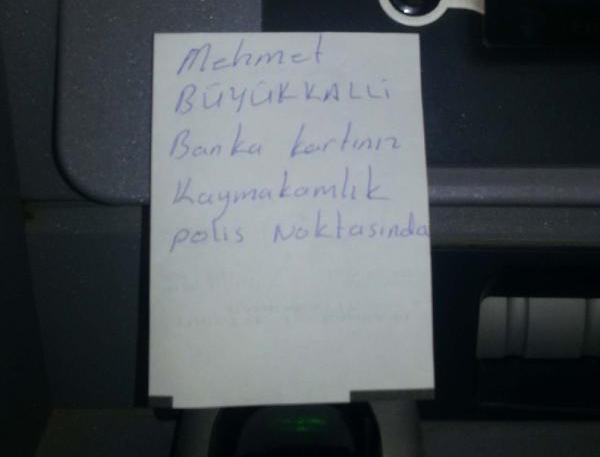 Mehmet
BÜYÜKKALLİ
Banka kartınız
Kaymakamlık
polis Noktasında